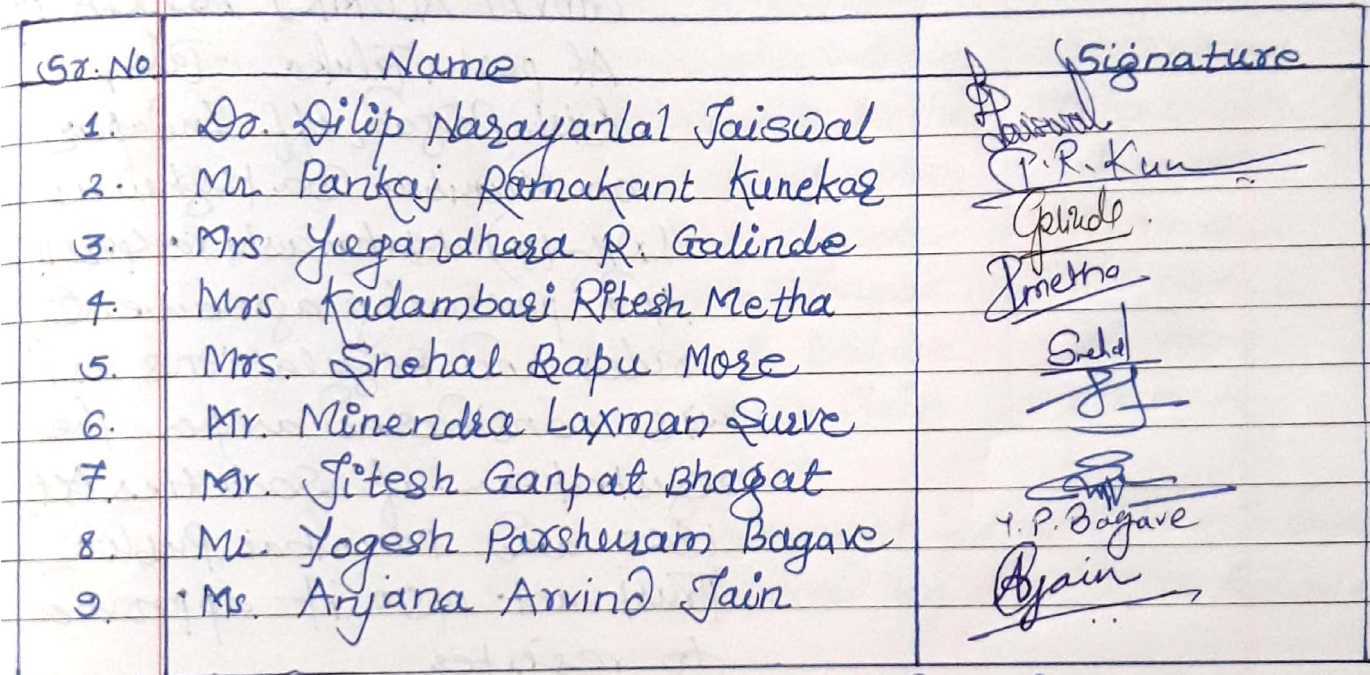 Sr. No Name Signature
1. Dr. Dilip Narayanlal Jaiswal Jaiswal
2. Mr. Pankaj Ramakant Kunekar P.R. Kun
3. Mrs Yugandhara R. Galinde Galinde
4. Mrs Kadambari Ritesh Metha metha
5. Mrs. Snehal Bapu More Snehal
6. Mr. Minendra Laxman Surve
7. Mr. Jitesh Ganpat Bhagat
8 Mr. Yogesh Parshuram Bagave Y.P. Bagave
9. Ms. Anjana Arvind Jain Ajain